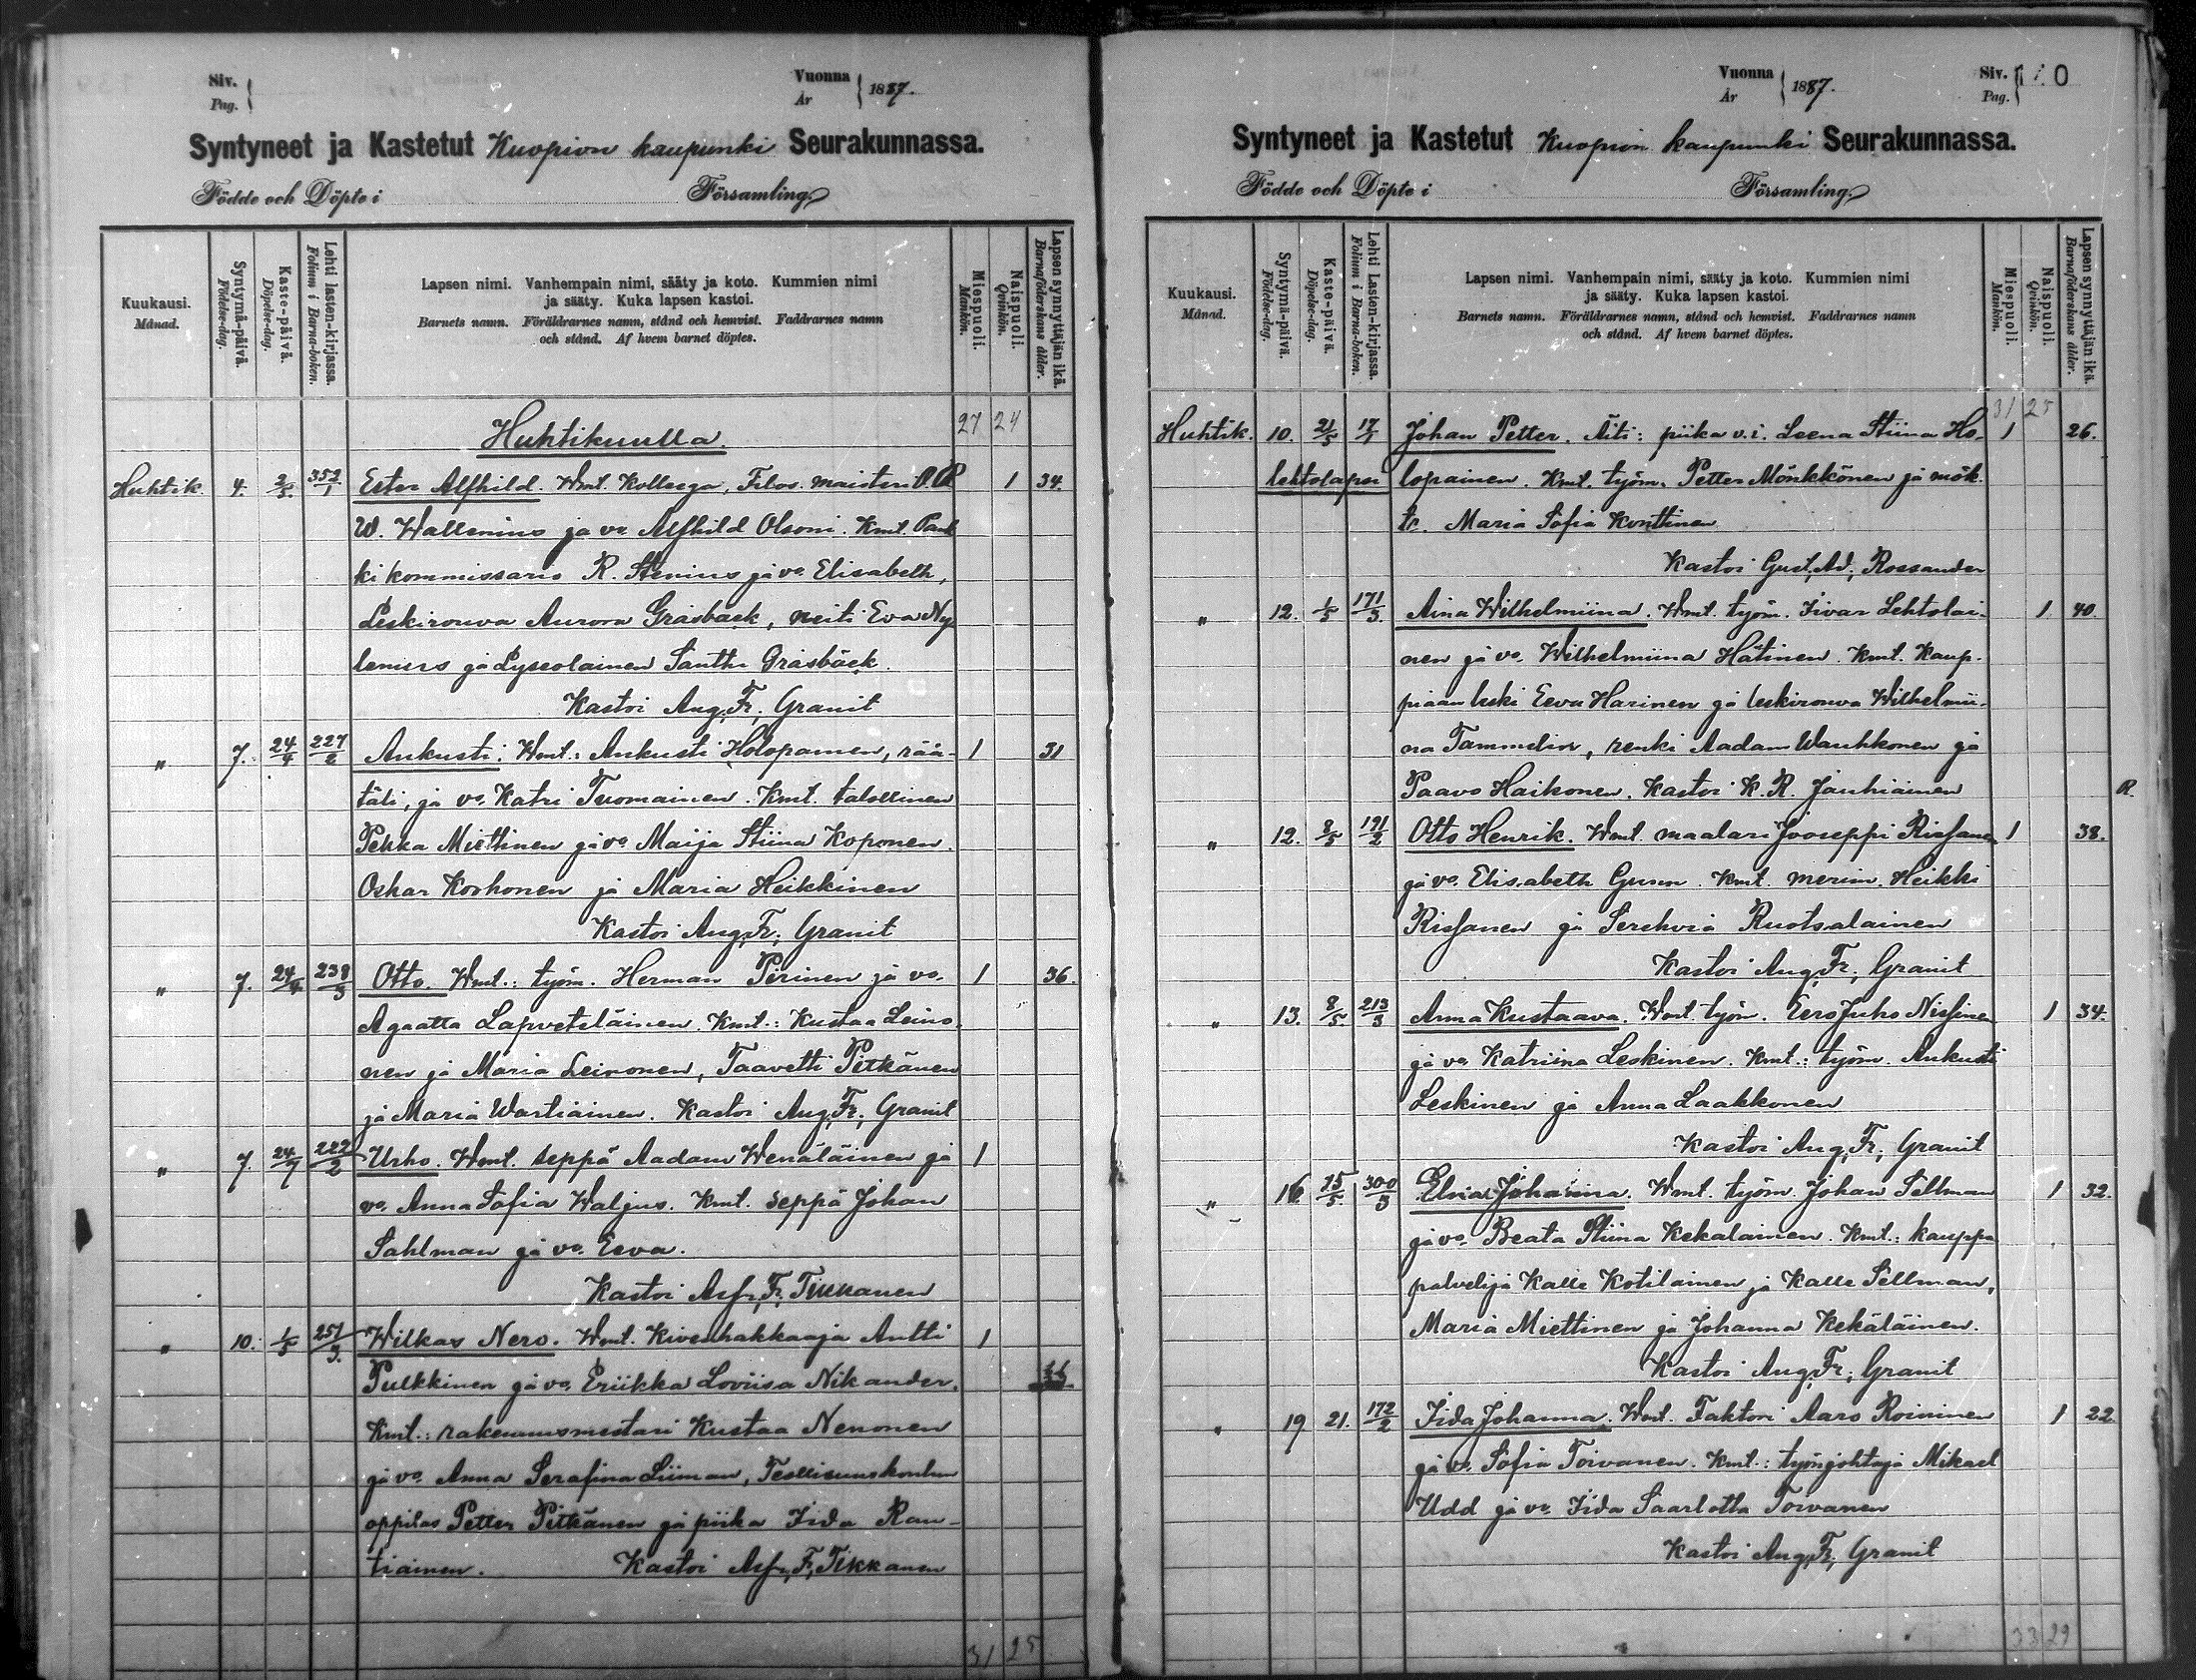 Siv.
Pag.
Vuonna
År
1887.
Syntyneet ja Kastetut Kuopion kaupunki Seurakunnassa.
Födde och Döpte i Församling.
Kuukausi.
Månad.
Syntymä-päivä.
Födelse-dag.
Kaste-päivä.
Döpelse-dag.
Lehti lasten-kirjassa.
Folium i Barna-boken.
Lapsen nimi. Vanhempain nimi, sääty ja koto. Kummien nimi
ja sääty. Kuka lapsen kastoi.
Barnets namn. Föräldrarnes namn, stånd och hemvist. Faddrarnes namn
och stånd. Af hvem barnet döptes.
Miespuoli.
Mankön.
Naispuoli.
Qvinkön.
Lapsen synnyttäjän ikä.
Barnaföderskans ålder.
Huhtikuulla. 27 24
Huhtik. 4. 2/5. 352/1 Ester Alfhild. Wmt. Kollega, Filos. maisteri O. R 1 34.
W. Wallenius ja vo. Alfhild Olsoni. Kmt. Pank
kikommissario R. Stenius ja vo. Elisabeth,
Leskirouva Aurora Gräsbäck, neiti Eva Ny-
lenius ja Lyseolainen Santhe Gräsbäck.
Kastoi Aug. Fr. Granit
" 7. 24/4 227/2 Aukusti. Wmt.: Aukusti Holopainen, rää- 1 31
täli, ja vo. Katri Tuomainen. Kmt. talollinen
Pekka Miettinen ja vo. Maija Stiina Koponen.
Oskar Korhonen ja Maria Heikkinen
Kastoi Aug. Fr. Granit
" 7. 24/4 238/3 Otto. Wmt.: työm. Herman Pirinen ja vo. 1 36.
Agaatta Lapveteläinen. Kmt.: Kustaa Leino-
nen ja Maria Leinonen, Taavetti Pitkänen
ja Maria Wartiainen. Kastoi Aug. Fr. Granit
" 7. 24/7 222/2 Urho. Wmt. seppä Aadam Wenäläinen ja 1
vo. Anna Sofia Waljus. Kmt. seppä Johan
Sahlman ja vo. Eeva.
Kastoi Fr. Tikkanen
" 10. 1/5 251/3. Wilkas Nero. Wmt. Kivenhakkaaja Antti 1
Pulkkinen ja vo. Eriikka Loviisa Nikander.
Kmt.: rakennusmestari Kustaa Nenonen
ja vo. Anna Serafina Liiman, Teollisuuskoulun
oppilas Petter Pitkänen ja piika Iida Rau-
tiainen. Kastoi F. Tikkanen
31 25
Vuonna
År
1887.
Siv.
Pag.
0
Syntyneet ja Kastetut Kuopion kaupunki Seurakunnassa.
Födde och Döpte i Församling.
Kuukausi.
Månad.
Syntymä-päivä.
Födelse-dag.
Kaste-päivä.
Döpelse-dag.
Lehti Lasten-kirjassa.
Folium i Barna-boken.
Lapsen nimi. Vanhempain nimi, sääty ja koto. Kummien nimi
ja sääty. Kuka lapsen kastoi.
Barnets namn. Föräldrarnes namn, stånd och hemvist. Faddrarnes namn
och stånd. Af hvem barnet döptes.
Miespuoli.
Mankön.
Naispuoli.
Qvinkön.
Lapsen synnyttäjän ikä.
Barnaföderskans ålder.
31 25
Huhtik. 10. 21/5 17/1 Johan Petter. Äiti: piika v.i. Leena Stiina Ho- 1 26.
lehtolapsi lopainen. Kmt. työm. Petter Mönkkönen ja mök.
tr. Maria Sofia Konttinen
Kastoi Gust. Ad. Rossander
" 12. 1/5 171/3 Aina Wilhelmiina. Wmt. työm. Iivar Lehtolai- 1 40.
nen ja vo. Wilhelmiina Hätinen. Kmt. Kaup-
piaan leski Eeva Harinen ja leskirouva Wilhelmii-
na Tammelin, renki Aadam Wauhkonen ja
Paavo Haikonen. Kastoi K. R. Jauhiainen R.
" 12. 8/5 191/2 Otto Henrik. Wmt. maalari Jooseppi Rissanen 1 38.
ja vo. Elisabeth . Kmt. merim. Heikki
Rissanen ja Serehvia Ruotsalainen
Kastoi Aug. Fr. Granit
" 13. 8/5. 213/3 Anna Kustaava. Wmt. työm. Eero Juho Nissinen 1 34.
ja vo. Katriina Leskinen. Kmt.: työm. Aukusti
Leskinen ja Anna Laakkonen
Kastoi Aug. Fr. Granit
" 16. 15/5. 300/3 Elvia Johanna. Wmt. työm. Johan Sellman 1 32.
ja vo. Beata Stiina Kekalainen. Kmt.: kauppa
palvelija Kalle Kotilainen ja Kalle Sellman,
Maria Miettinen ja Johanna Kekäläinen.
Kastoi Aug. Fr. Granit
" 19. 21. 172/2 Iida Johanna. Wmt. Faktori Aaro Roininen 1 22
ja vo. Sofia Toivanen. Kmt.: työnjohtaja Mikael
Udd ja vo. Iida Saarlotta Toivanen
Kastoi Aug. Fr. Granit
33 29